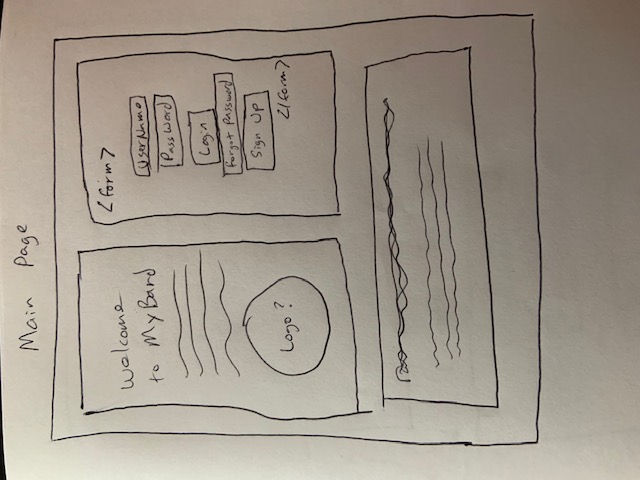 Main Page
Welcome
to MyBard
Logo?
<form>
UserName
Password
Login
Forgot Password
Sign Up
</form>